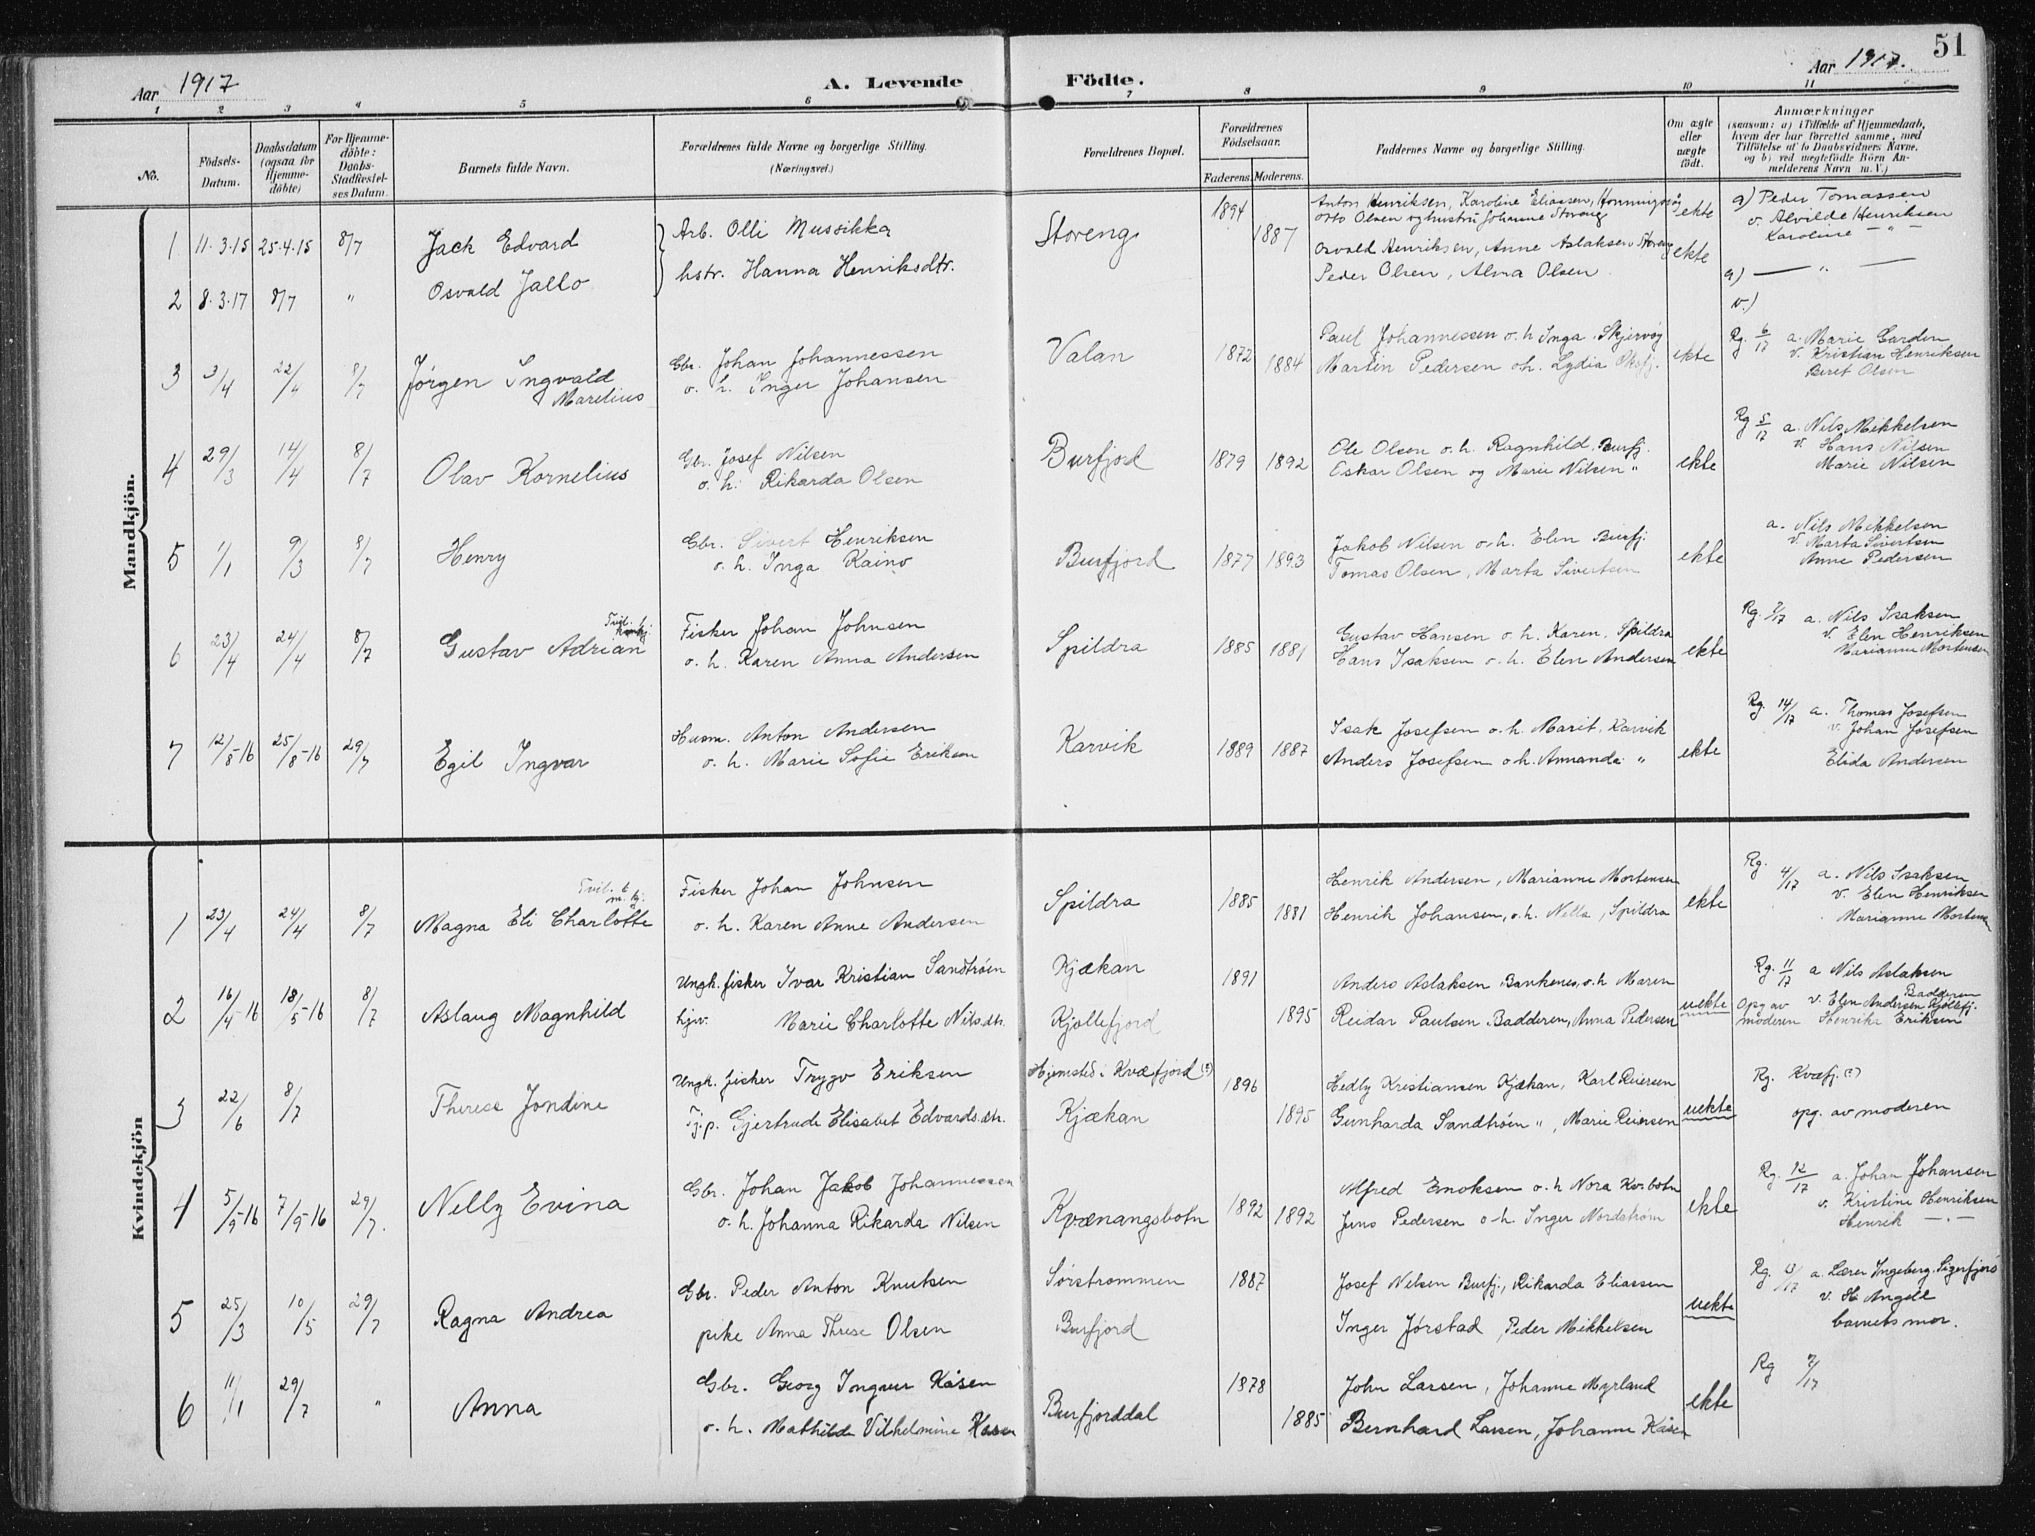 51
Aar 1917
A. Levende Födte.
Aar 1917.
1 2 3 4 5 6 7 8 9 10 11
No.
Födsels-Datum.
Daabsdatum (ogsaa for Hjemmedöbte)
For Hjemmedöbte: Daabs-Stadfæstelses Datum.
Barnets fulde Navn.
Forældrenes fulde Navne og borgerlige Stilling. (Næringsvei.)
Forældrenes Bopæl.
Forældrenes Födselsaar.
Faderens. Moderens.
Faddernes Navne og borgerlige Stilling.
Om ægte eller uægte födt.
Anmærkninger (saasom: a) i Tilfælde af Hjemmedaab, hvem der har forrettet samme, med Tilföielse af to Daabsvidners Navne. og b) ved uægtefödte Börn Anmelderens Navn m. V.)
Mandkjön.
1 11.3.15 25.4.15 8/7 Jack Edvard
Arb. Olli Mussikka
hstr. Hanna Henriksdtr.
Storeng 1894 1887
Anton Henriksen, Karoline Eliassen, Honningsvåg
Otto Olsen og hustru Johanne Storeng
ekte
a) Peder Tomassen
v. Alvilde Henriksen
Karoline — " —
2 8.3.17 8/7 " Osvald Jallo
Osvald Henriksen, Anne Aslaksen Storeng
Peder Olsen, Alma Olsen
ekte
a) — " —
v.)
3 3/4 22/4 8/7 Jørgen Ingvald
Marelius
Gbr. Johan Johannessen
o. h. Inger Johansen
Valan 1872 1884
Paul Johannessen o. h Inga Skjervøy
Martin Pedersen oh. Lydia Oksfj.
ekte
Rg. 6/17 a. Marie Garden
v. Kristian Henriksen
Beret Olsen
4 29/3 14/4 8/7 Olav Kornelius
Gbr. Josef Nilsen
o. h. Rikarda Olsen
Burfjord 1879 1892
Ole Olsen o. h. Ragnhild, Burfj.
Oskar Olsen og Marie Nilsen "
ekte
Rg 5/17 a. Nils Mikkelsen
v. Hans Nilsen
Marie Nilsen
5 1/1 9/3 8/7 Henry
Gbr. Sivert Henriksen
o. h. Inga Kaino
Burfjord 1877 1893
Jakob Nilsen o.h. Elen Burfj.
Tomas Olsen, Marta Sivertsen
ekte
a. Nils Mikkelsen
v. Marta Sivertsen
Anne Pedersen
6 23/4 24/4 8/7 Gustav Adrian
Fisker Johan Johnsen
o. h. Karen Anna Andersen
Spildra 1885 1881
Gustav Hansen o. h. Karen, Spildra
Hans Isaksen o. h. Elen Andersen
ekte
Rg. 3/17 a. Nils Isaksen
v. Elen Henriksen
Marianne Mortensen
7 12/8-16 25/8-16 29/7 Egil Ingvar
Husm. Anton Andersen
o. h. Marie Sofie Eriksen
Karvik 1889 1887
Isak Josefsen o. h. Marit, Karvik
Anders Josefsen o.h. Annanda "
ekte
Rg. 14/17 a. Thomas Josefsen
v. Johan Josefsen
Elida Andersen
Kvindekjön
1 23/4 24/4 8/7 Magna Eli Charlotte
Tvil. t m. kj.
Fisker Johan Johnsen
o. h. Karen Anne Andersen
Spildra 1885 1881
Henrik Andersen, Marianne Mortensen
Henrik Johansen, o. h. Nella, Spildra
ekte
Rg. 4/17 a. Nils Isaksen
v. Elen Henriksen
Marianne Mortensen
2 16/4-16 18/5-16 8/7 Aslaug Magnhild
Ungk. fisker Ivar Kristian Sandtrøen
hjv. Marie Charlotte Nilsdtr.
Kjækan
Kjøllefjord
1891 1895
Anders Aslaksen Bankenes, o. h Maren
Reidar Paulsen Badderen, Anna Pedersen
uekte
Rg. 11/17 a Nils Aslaksen
Badderen
Opg av moderen
v. Elen Andersen Kjøllefj.
Henrika Eriksen
3 22/6 8/7 Therese Jondine
Ungk. fisker Trygv Eriksen
Tj.p. Gjertrude Elisabet Edvardsdtr.
Hjemsted i Kvæfjord (?)
Kjækan
1896 1895
Hedly Kristiansen Kjækan, Karl Reiersen
Gunharda Sandtrøen ", Marie Reiersen
uekte
Rg. Kvæfj. (?)
opg. av moderen
4 5/9-16 7/9-16 29/7. Nelly Evina
Gbr. Johan Jakob Johannessen
o. h. Johanna Rikarda Nilsen
Kvænangsbotn 1892 1892
Alfred Enoksen o. h Nora Kv.botn
Jens Pedersen o. h. Inger Nordstrøm
ekte
Rg. 12/17 a. Johan Johansen
v. Kristine Henriksen
Henrik — " —
5 25/3 10/5 29/7 Ragna Andrea
Gbr. Peder Anton Knutsen
pike Anna Threse Olsen
Sørstrømmen
Burfjord
1887
Josef Nilsen Burfj., Rikarda Eliassen
Inger Jørstad, Peder Mikkelsen
uekte
Rg. 13/17 a. Lærer Ingeberg. Sigerfjord
v. H. Angell
barnets mor.
6 11/1 29/7 " Anna
Gbr. Georg Ingvar Kåsen
o. h. Mathilde Vilhelmine Kåsen
Burfjorddal 1878 1885
John Larsen, Johanne Myrland
Bernhard Larsen, Johanne Kåsen
ekte
Rg 7/17